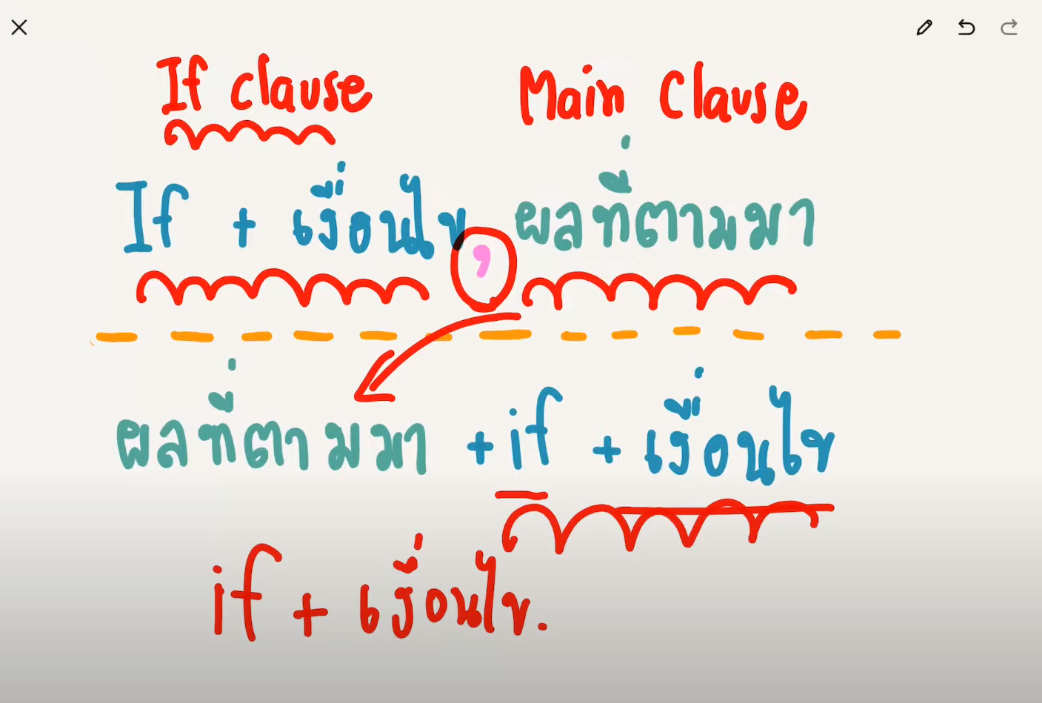 If clause Main Clause
If + เงื่อนไข , ผลที่ตามมา
ผลที่ตามมา + if + เงื่อนไข
if + เงื่อนไข.